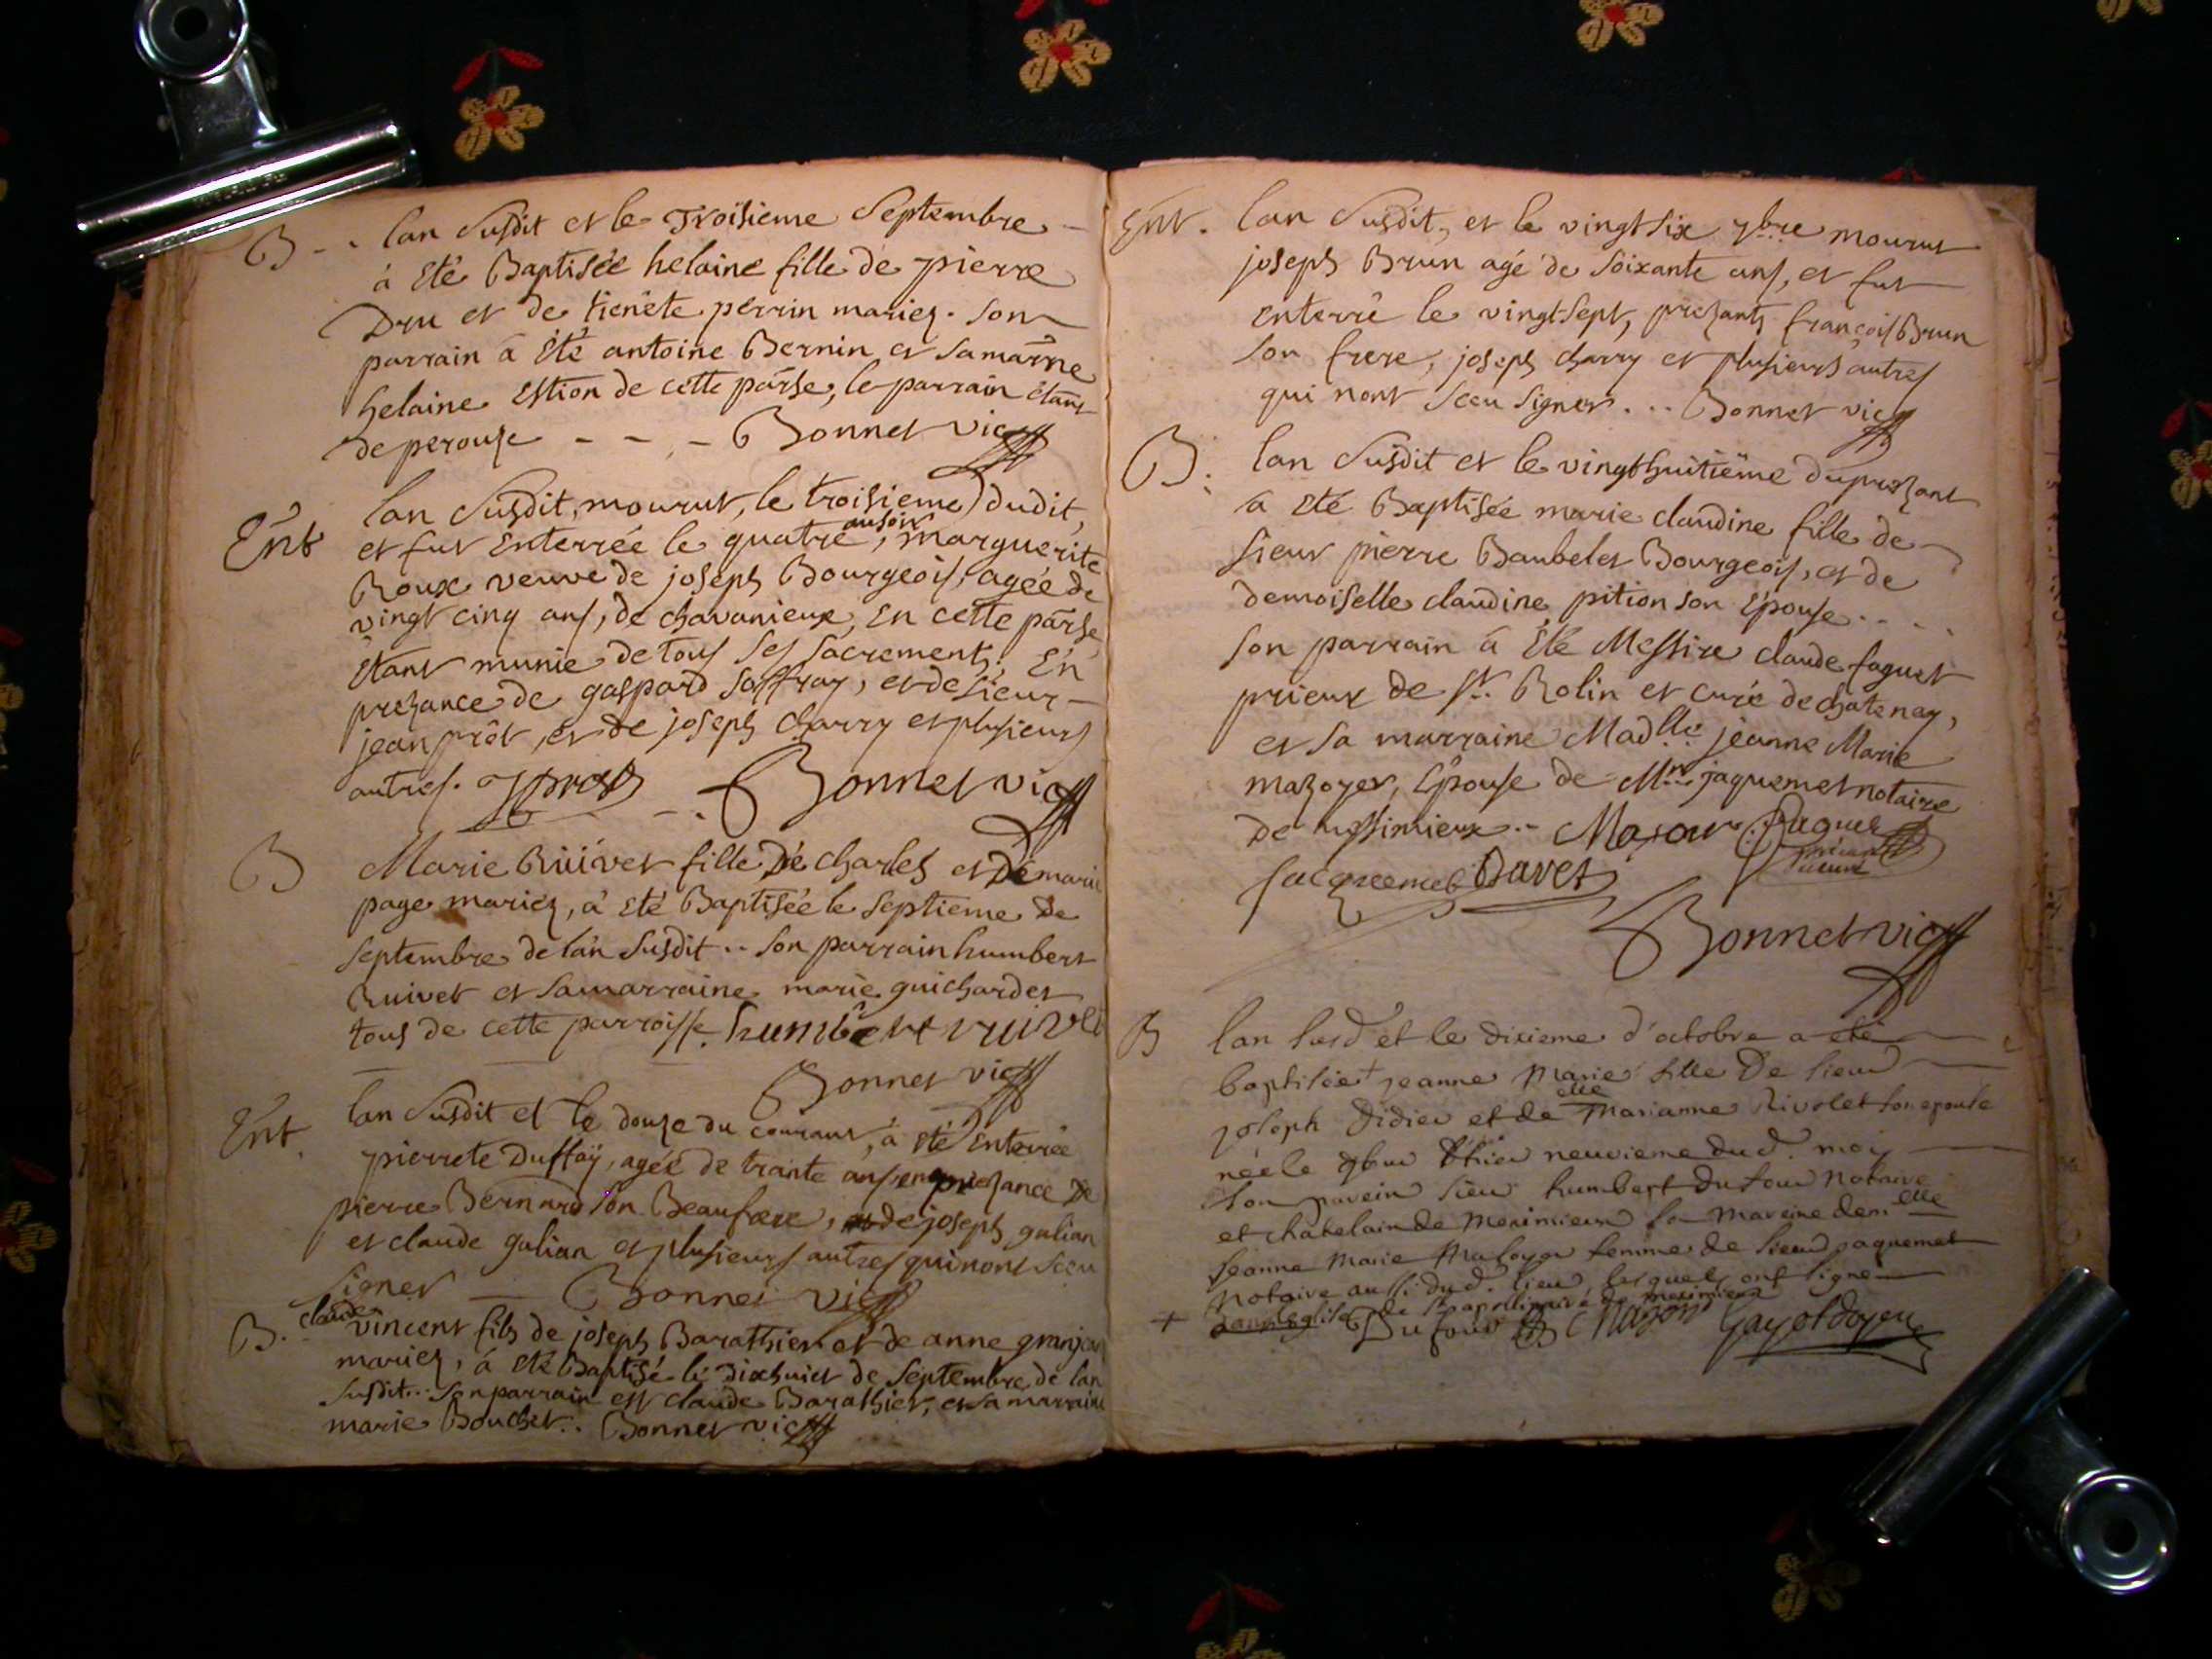 B - . lan susdit et le Troisieme Septembre -
à Eté Baptisée helaine fille de pierre
Dru et de tienête perrin mariez. son
parrain à Eté antoine Bernin et samarne
helaine Estion de cette parse, le parrain étant
de perouze - - - Bonnet vic
Ent lan susdit, mourut, le troisieme dudit,
et fut Enterrée le quatre au soir, marguerite
Roux veuve de joseph Bourgeois, agée de
vingt cinq ans, de chavanieux, En cette parse
Etant munie de tous ses sacrements; En
prezance de gaspard saffray, et de sieur -
jean prôt, et de joseph charry et plusieurs
autres. Jprost - . Bonnet vic
B Marie Rüivet fille De charles et De marie
page mariez, à Eté Baptisée le septieme De
septembre de lan susdit .. son parrain humbert
Ruivet et samarraine marie guichardet
tous de cette parroisse. humbert ruivet
Bonnet vic
Ent. lan susdit et le douze du courant, à Eté Enterrée
pierrete Duffaÿ, agée de trante ans en prezance De
pierre Bernard son Beaufrere, de joseph galian
et claude galian et plusieurs autres qui nont sceu
signer — Bonnet vic
B. claude vincent fils de joseph Barathier et de anne granjan
mariez, à Eté Baptisé le dixhuict de septembre de lan
susdit... son parrain est claude Barathier, et sa marraine
marie Bouchet.. Bonnet vic
Ent. lan susdit, et le vingt six 7bre mourut
joseph Brun agé de soixante ans, et fut
enterré le vingt-sept, prezants françois Brun
son frere, joseph charry et plusieurs autres
qui nont sceu signer. .. Bonnet vic
B. lan susdit et le vingthuitiême duprezant
à Eté Baptisée marie claudine fille de
sieur pierre Baubelet Bourgeois, et de
demoiselle claudine pition son Epouse . . . .
son parrain à Eté Messire claude faguet
prieur de st. Rolin et curé de chatenay,
et sa marraine Madlle jeanne Marie
mazoyer, Epouse de Mre jaquemet notaire
de messimieux .- Mazoier Faguet
prieur
jacquemet Davet
Bonnet vic
B lan susd et le dixieme d'octobre a eté
baptisée + jeanne Marie fille De sieur
joseph Didier et de elle Marianne Rivolet son epouse
née le jour d'hier neuvieme dud. moy
son parein sieur humbert dufour Notaire
et chatelain de meximieux sa mareine demelle
jeanne Marie Mazoyer femme de sieur jaquemet
Notaire aussi dud. lieu lesquels ont signe
+ dans l'eglise de St apollinaire de meximieux
Dufour Mazoyer Gayot doyen